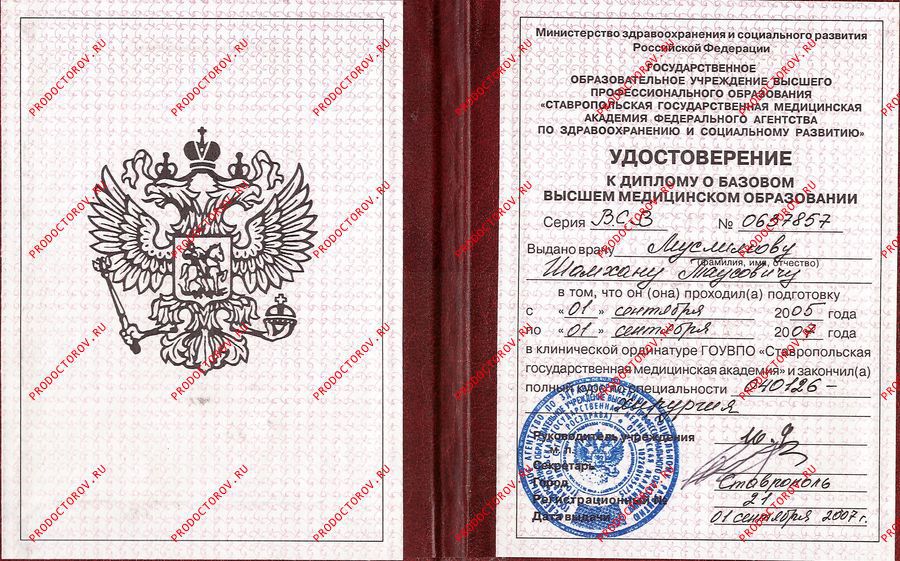 Министерство здравоохранения и социального развития
Российской Федерации
ГОСУДАРСТВЕННОЕ
ОБРАЗОВАТЕЛЬНОЕ УЧРЕЖДЕНИЕ ВЫСШЕГО
ПРОФЕССИОНАЛЬНОГО ОБРАЗОВАНИЯ
«СТАВРОПОЛЬСКАЯ ГОСУДАРСТВЕННАЯ МЕДИЦИНСКАЯ
АКАДЕМИЯ ФЕДЕРАЛЬНОГО АГЕНТСТВА
ПО ЗДРАВООХРАНЕНИЮ И СОЦИАЛЬНОМУ РАЗВИТИЮ»
УДОСТОВЕРЕНИЕ
К ДИПЛОМУ О БАЗОВОМ
ВЫСШЕМ МЕДИЦИНСКОМ ОБРАЗОВАНИИ
Серия В.С.В № 0637857
Выдано врачу Муслимову
(фамилия, имя, отчество)
Шамхану Таусовичу
в том, что он (она) проходил(а) подготовку
с «01» сентября 2005 года
по «01» сентября 2007 года
в клинической ординатуре ГОУВПО «Ставропольская
государственная медицинская академия» и закончил(а)
полный курс по специальности 040126 –
хирургия
Руководитель учреждения
М.П.
Секретарь
Город Ставрополь
Регистрационный № 21
Дата выдачи 01 сентября 2007 г.
PRODOCTOROV.RU